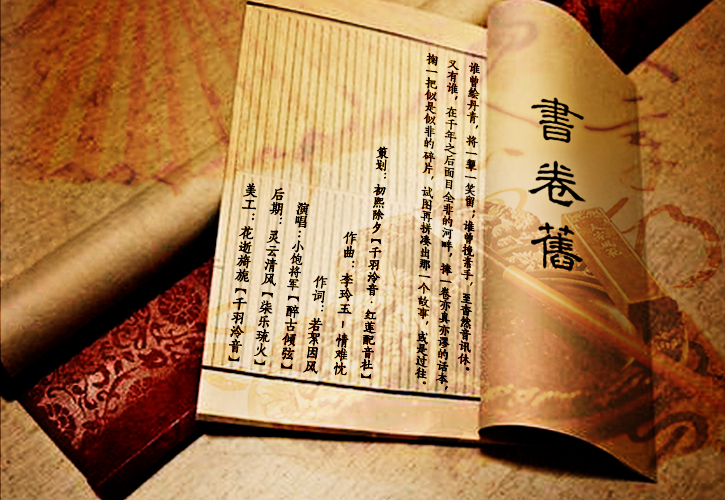 書卷舊
谁曾绘丹青，将一颦一笑留；谁曾挽素手，至杳然音讯休。
又有谁，在千年之后面目全非的河畔，捧一卷亦真亦谬的话本，
掬一把似是似非的碎片，试图再拼凑出那一个故事，或是过往。
策划：初熙除夕【千羽泠音·红莲配音社】
作曲：李玲玉－情难忱
作词：若絮因风
演唱：小饱将军【醉古倾弦】
后期：灵云清风【柒乐琉火】
美工：花逝旖旎【千羽泠音】